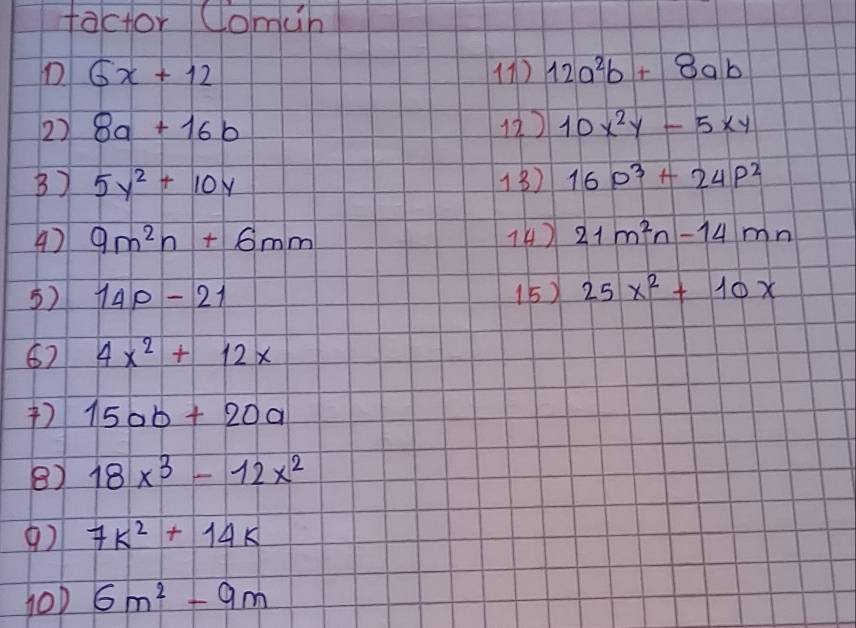 Factor Común
1) 6x + 12
2) 8a + 16b
3) 5y² + 10y
4) 9m²n + 6mm
5) 14p - 21
6) 4x² + 12x
7) 15ab + 20a
8) 18x³ - 12x²
9) 7k² + 14k
10) 6m² - 9m
11) 12a²b + 8ab
12) 10x²y - 5xy
13) 16p³ + 24p²
14) 21m²n - 14mn
15) 25x² + 10x